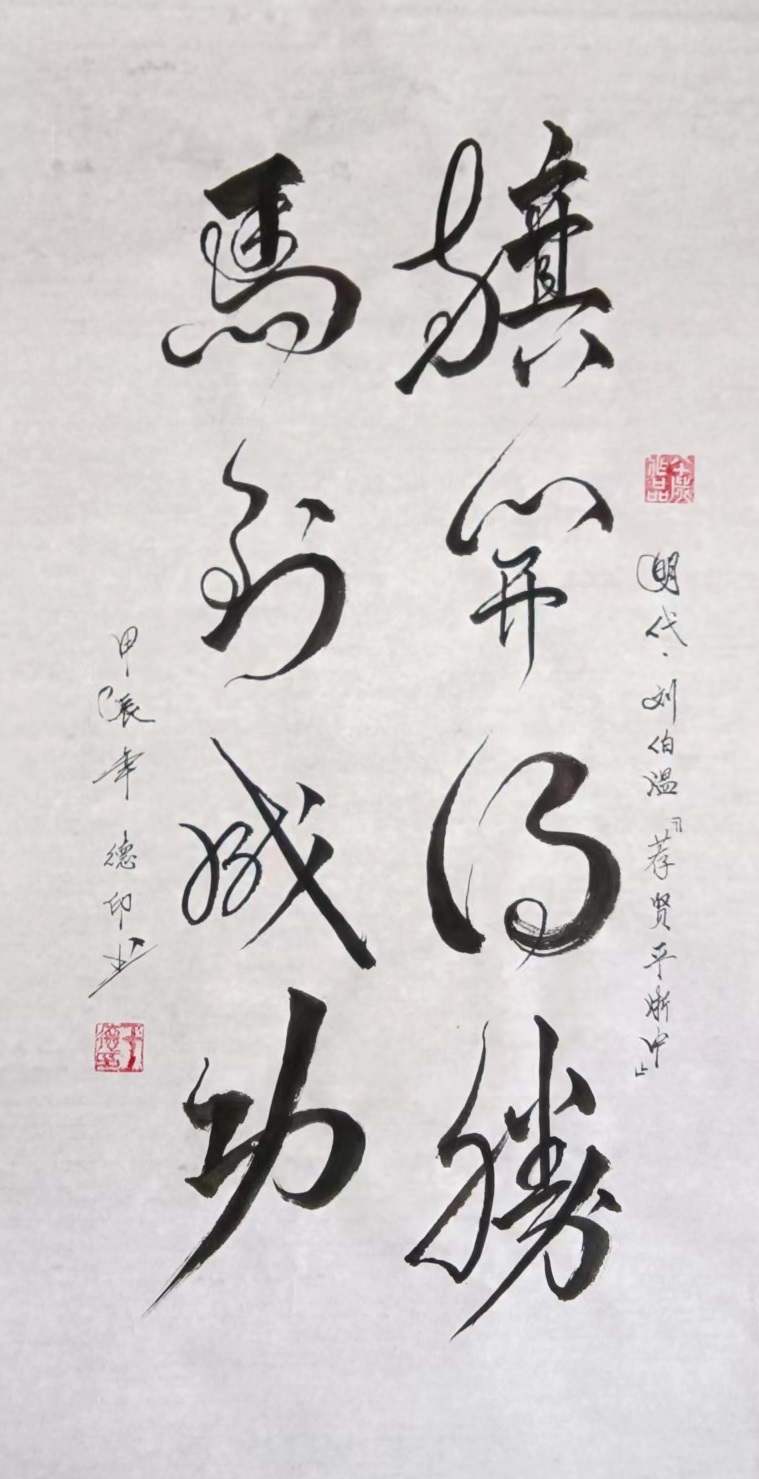 旗開得勝
馬到成功
明代·刘伯温『荐贤平浙中』
甲辰年 德印书